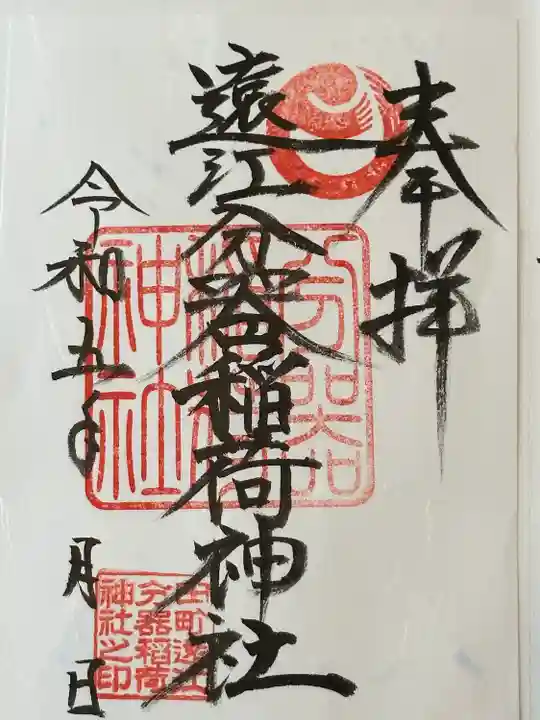 奉拝
遠江分器稲荷神社
令和五年 月 日
分器
稲荷
神社
田町遠江
分器稲荷
神社之印